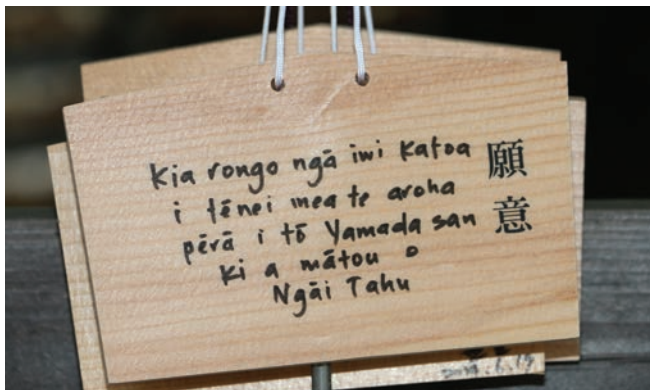 Kia rongo ngā iwi katoa
i tēnei mea te aroha
pērā i tō Yamada san
ki a mātou。
Ngāi Tahu
願意